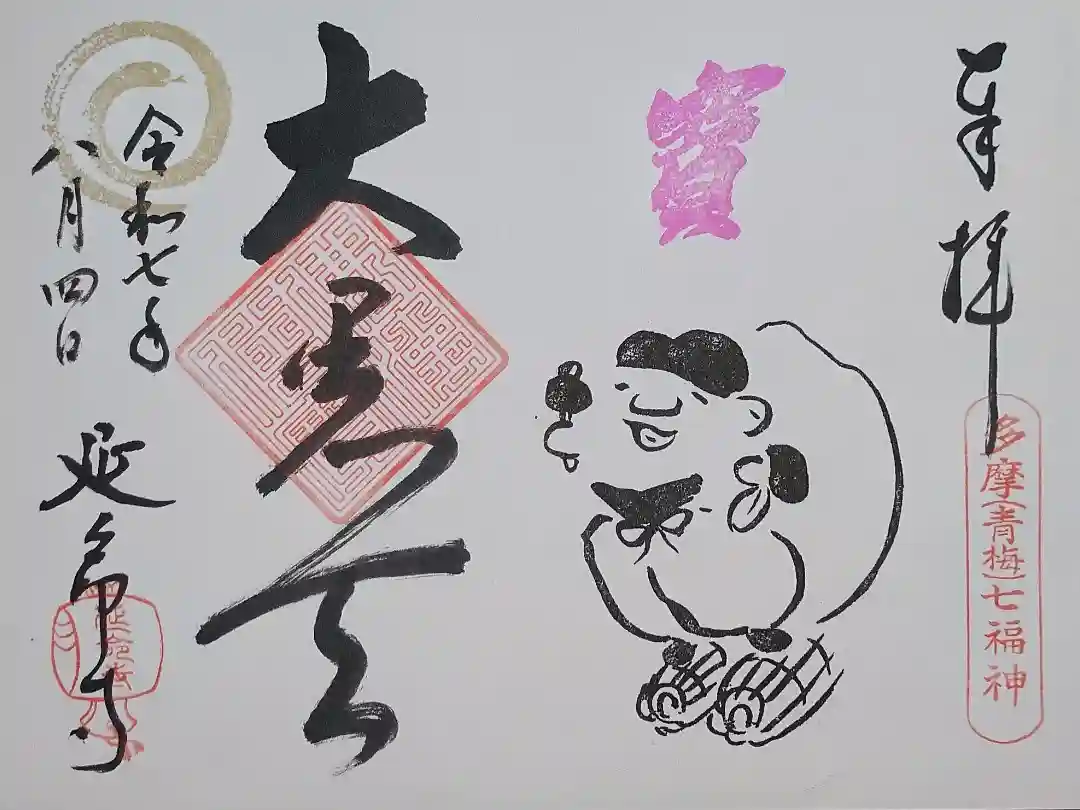 奉拝
多摩(青梅)七福神
寳
大黒天
令和七年
八月四日
延命寺
延命寺